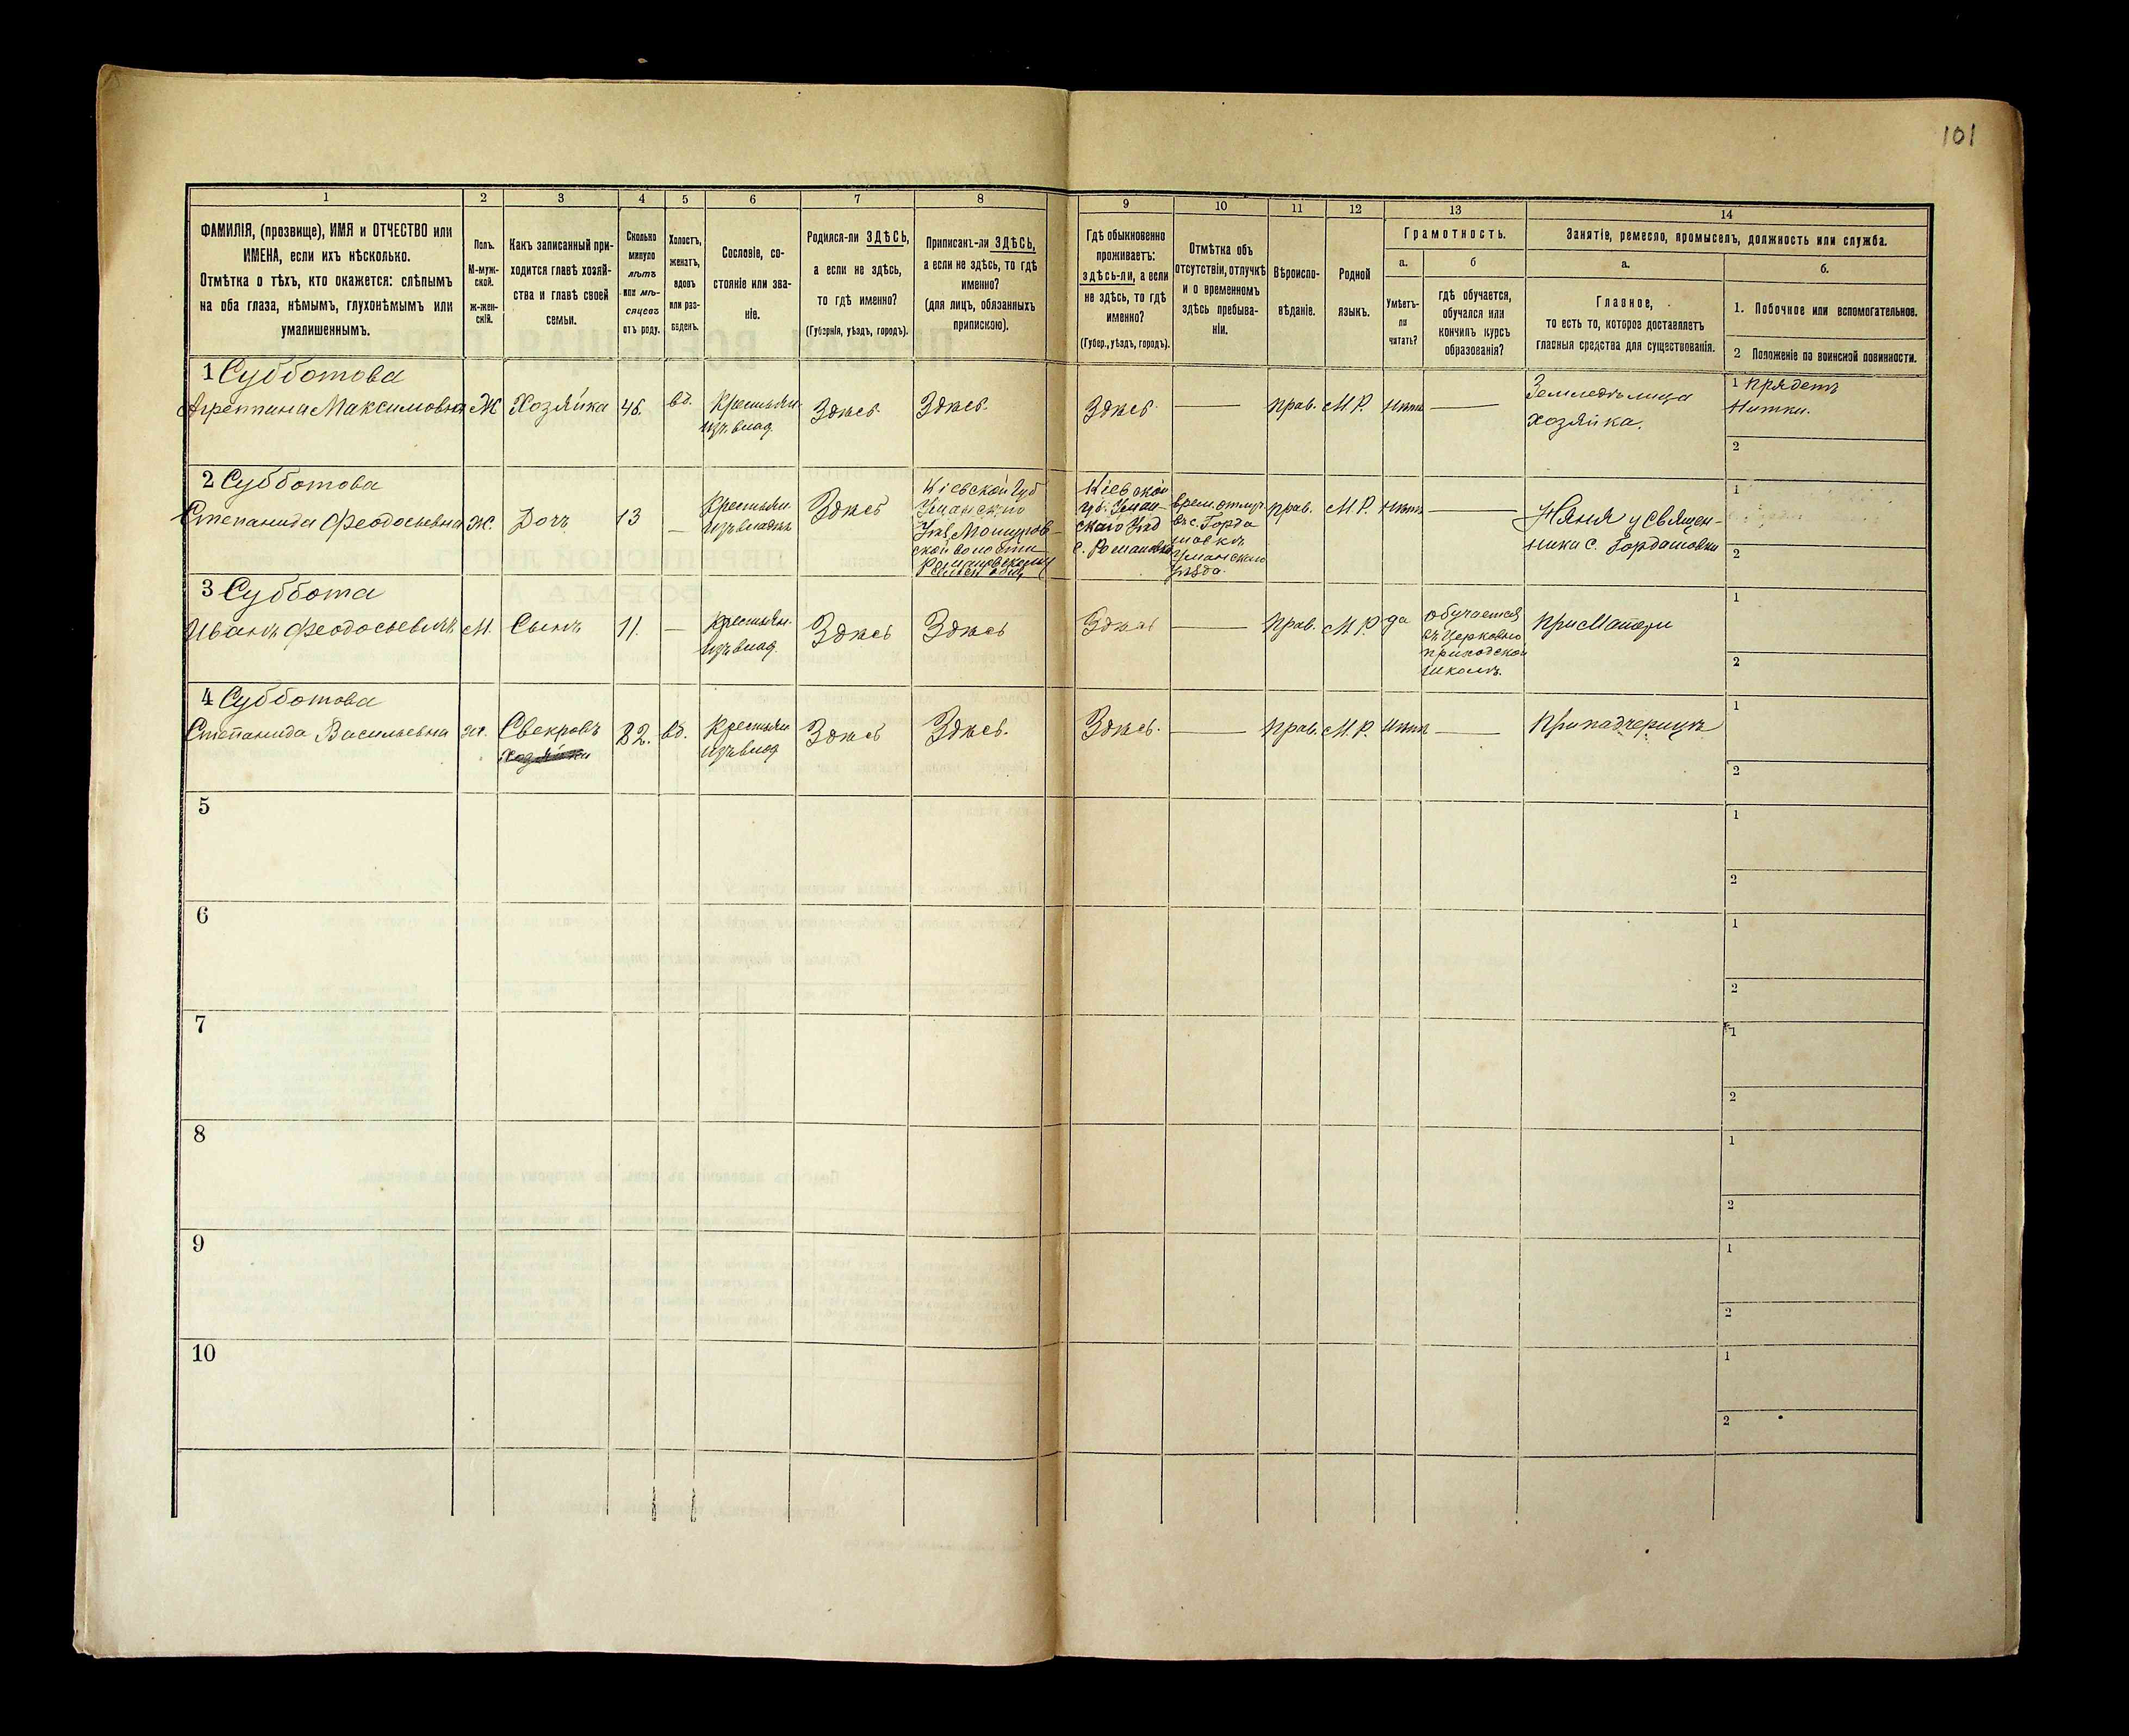 101
1
2
3
4
5
6
7
8
9
10
11
12
13
14
ФАМИЛІЯ, (прозвище), ИМЯ и ОТЧЕСТВО или
ИМЕНА, если ихъ нѣсколько.
Отмѣтка о тѣхъ, кто окажется: слѣпымъ
на оба глаза, нѣмымъ, глухонѣмымъ или
умалишеннымъ.
Полъ.
М-муж-
ской.
ж-жен-
скій.
Какъ записанный при-
ходится главѣ хозяй-
ства и главѣ своей
семьи.
Сколько
минуло
лѣтъ
или мѣ-
сяцевъ
отъ роду.
Холостъ,
женатъ,
вдовъ
или раз-
веденъ.
Сословіе, со-
стояніе или зва-
ніе.
Родился-ли ЗДѢСЬ,
а если не здѣсь,
то гдѣ именно?
(Губернія, уѣздъ, городъ).
Приписанъ-ли ЗДѢСЬ,
а если не здѣсь, то гдѣ
именно?
(для лицъ, обязанныхъ
припискою).
Гдѣ обыкновенно
проживаетъ:
здѣсь-ли, а если
не здѣсь, то гдѣ
именно?
(Губер., уѣздъ, городъ).
Отмѣтка объ
отсутствіи, отлучкѣ
и о временномъ
здѣсь пребыва-
ніи.
Вѣроиспо-
вѣданіе.
Родной
языкъ.
Грамотность.
а.
Умѣетъ-
ли
читать?
б
гдѣ обучается,
обучался или
кончилъ курсъ
образованія?
Занятіе, ремесло, промыселъ, должность или служба.
а.
Главное,
то есть то, которое доставляетъ
главныя средства для существованія.
б.
1. Побочное или вспомогательное.
2 Положеніе по воинской повинности.
1 Субботова
Агреппина Максимовна
Ж
Хозяйка
46.
вд.
Крестьян.
изъ влад.
Здѣсь
Здѣсь.
Здѣсь.
—
прав.
М.Р.
нѣтъ
—
Земледѣлица
хозяйка.
1 прядетъ
нитки.
2
2 Субботова
Степанида Феодосьевна
ж.
Дочь
13
—
Крестьян
изъ владѣл
Здѣсь
Кіевской Губ
Уманскаго
Уѣз
ской волости
Кіевской
губ. Уман-
скаго Уѣзд
с. Романовка
врем. отлуч.
въ с. Горда
шовкѣ
Уманскаго
Уѣзда.
прав.
М.Р.
нѣтъ
—
Няня у священ-
ника с. Гордашовки
1
2
3 Суббота
Иванъ Феодосьевичъ
М.
Сынъ
11.
—
Крестьян.
изъ влад.
Здѣсь
Здѣсь
Здѣсь
—
прав.
М.Р.
да
обучается
въ Церковно
приходской
школѣ.
при Матери
1
2
4 Субботова
Степанида Васильевна
ж.
Свекровь
82.
вд.
Крестьян
изъ влад
Здѣсь
Здѣсь.
Здѣсь.
—
прав.
М.Р.
нѣтъ
—
При падчерицѣ
1
2
5
1
2
6
1
2
7
1
2
8
1
2
9
1
2
10
1
2